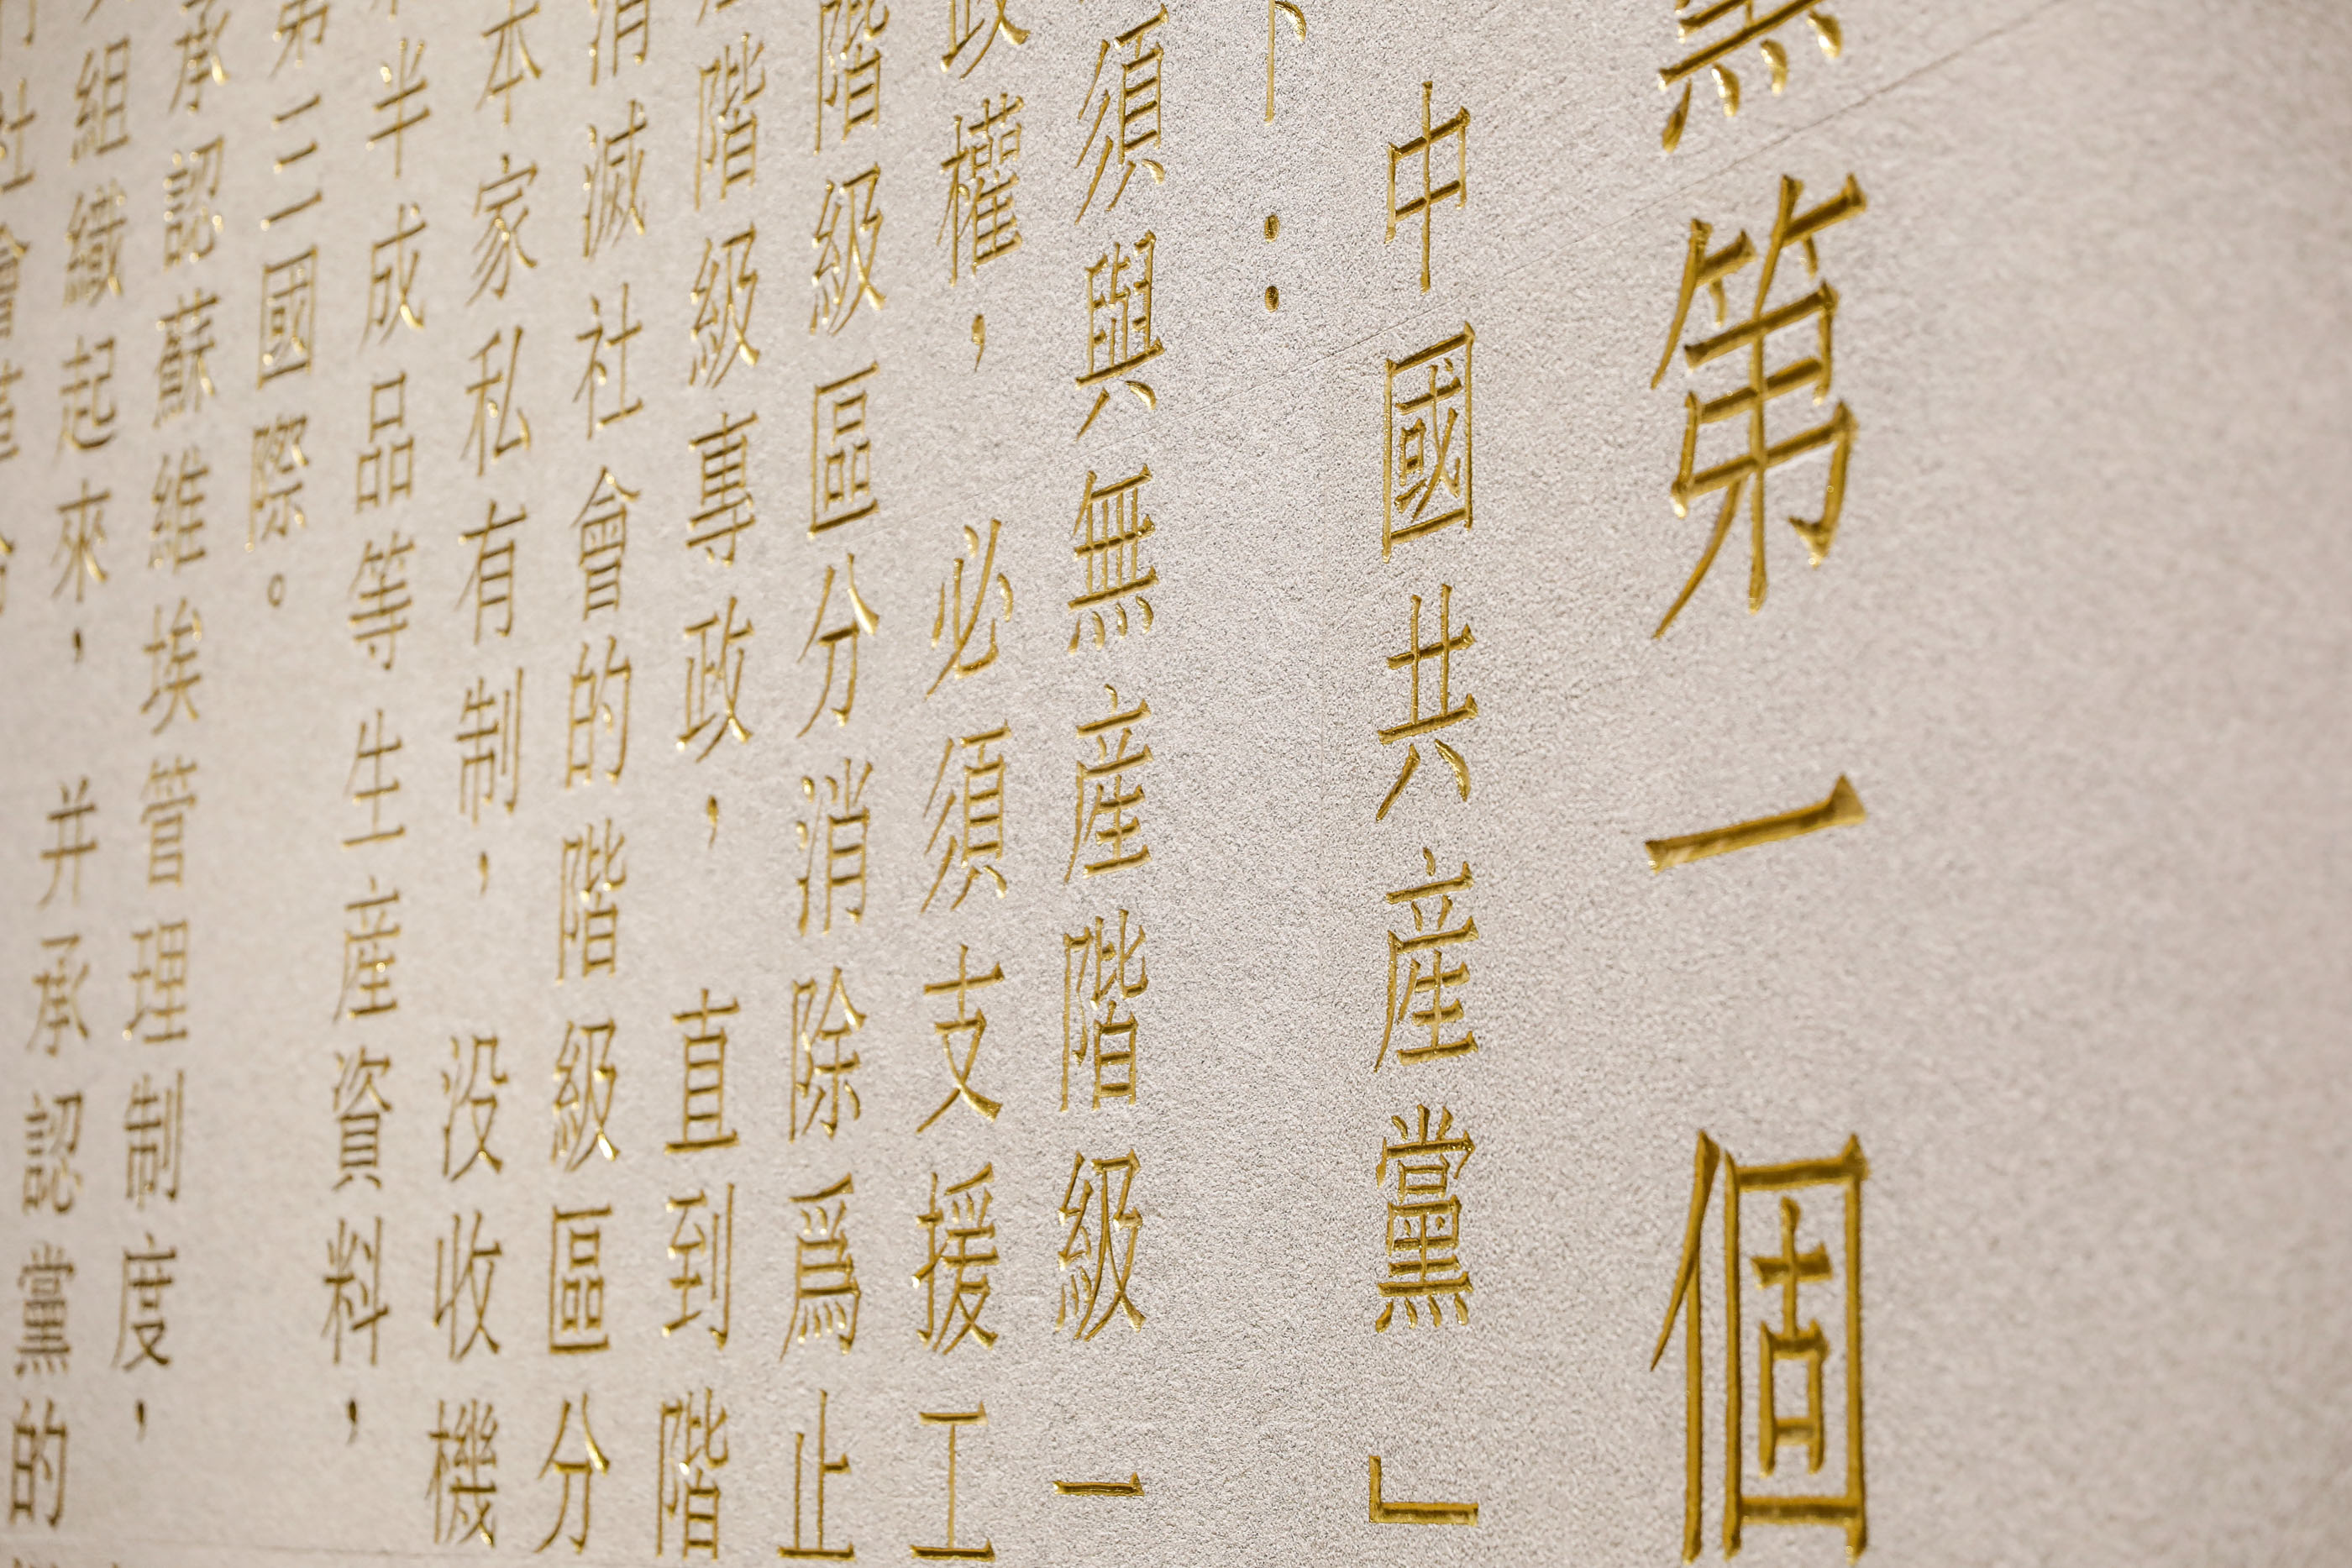 第一個
中國共產黨」
下：
須與無產階級一
政權，必須支援工
階級區分消除爲止
階級專政，直到階
消滅社會的階級區分
本家私有制，没收機
半成品等生產資料，
第三國際。
承認蘇維埃管理制度，
組織起來，并承認黨的
社會